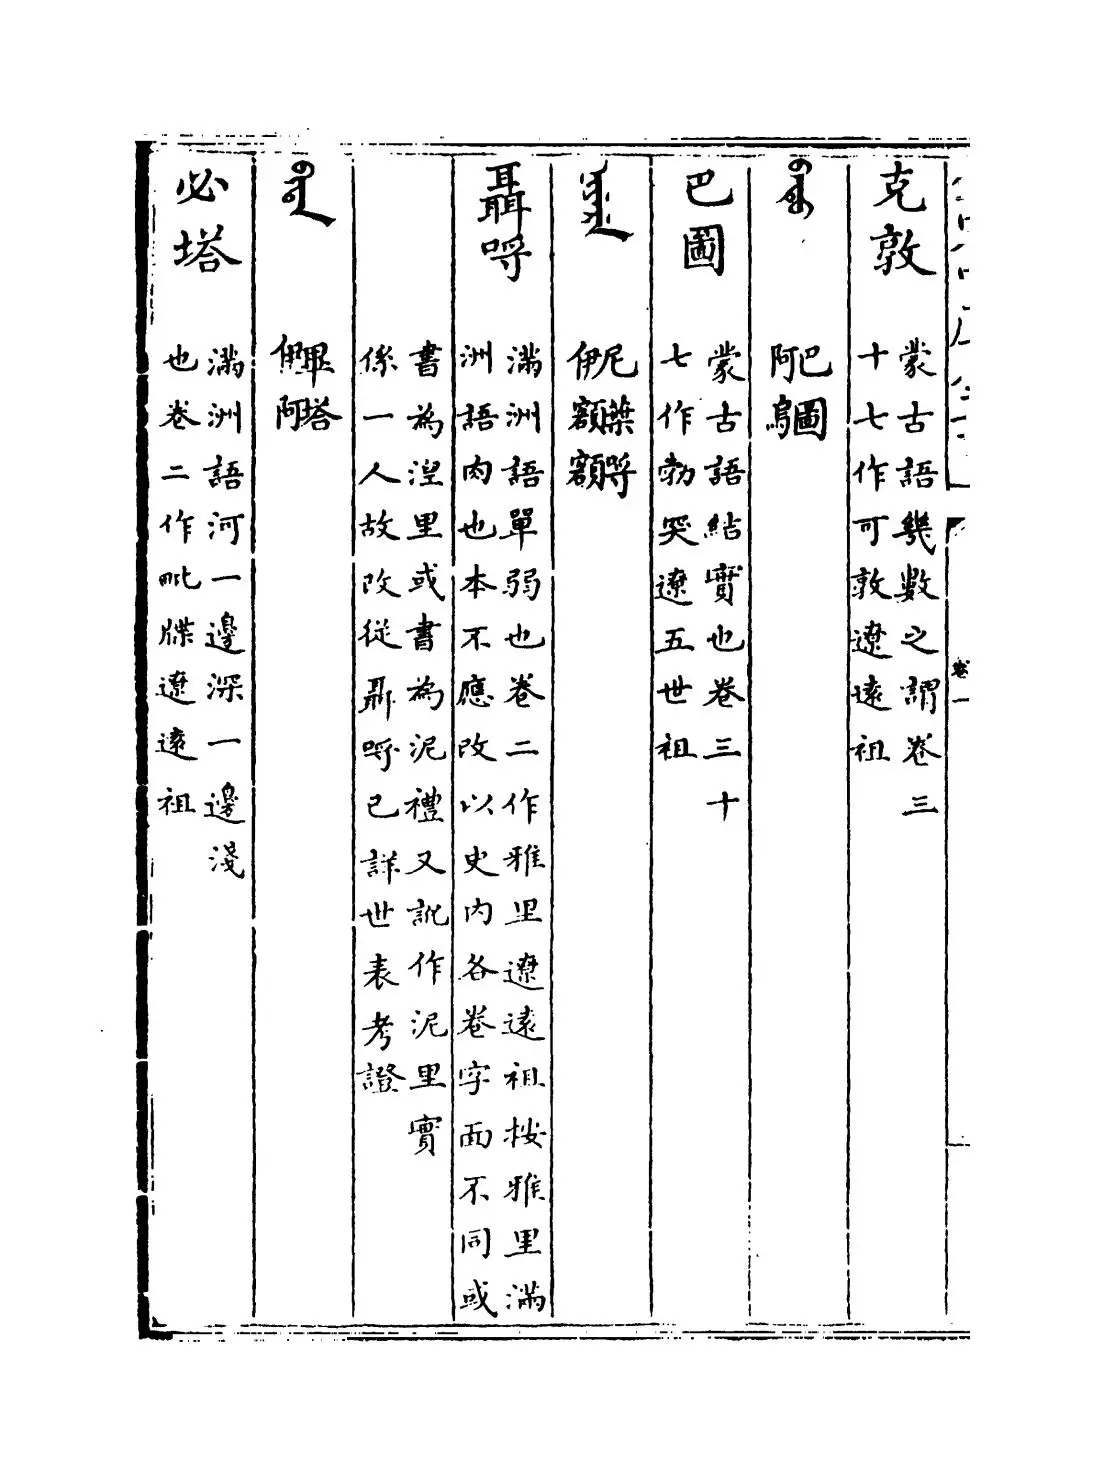 卷一
克敦
蒙古語幾數之謂卷三
十七作可敦遼遠祖
巴圖
阿烏
巴圖
蒙古語結實也卷三十
七作勃突遼五世祖
尼葉哷
伊額額
聶哷
滿洲語單弱也卷二作雅里遼遠祖按雅里滿
洲語肉也本不應改以史内各卷字面不同或
書為湼里或書為泥禮又訛作泥里實
係一人故改從聶哷已詳世表考證
畢塔
伊阿
必塔
滿洲語河一邊深一邊淺
也卷二作毗牒遼遠祖